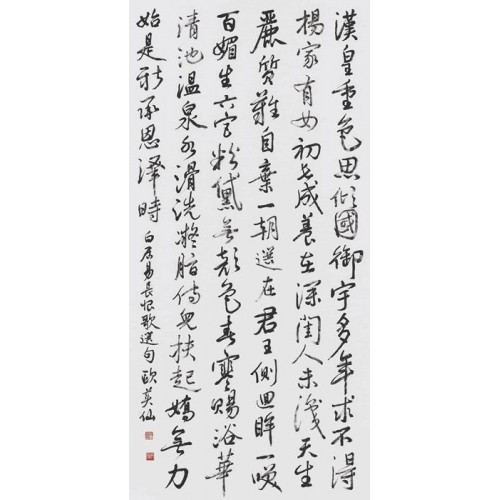 漢皇重色思傾國御宇多年求不得
楊家有女初長成養在深閨人未識天生
麗質難自棄一朝選在君王側迴眸一咲
百媚生六宮粉黛無顏色春寒賜浴華
清池溫泉水滑洗凝脂侍兒扶起嬌無力
始是新承恩澤時 白居易長恨歌選句 欧英仙